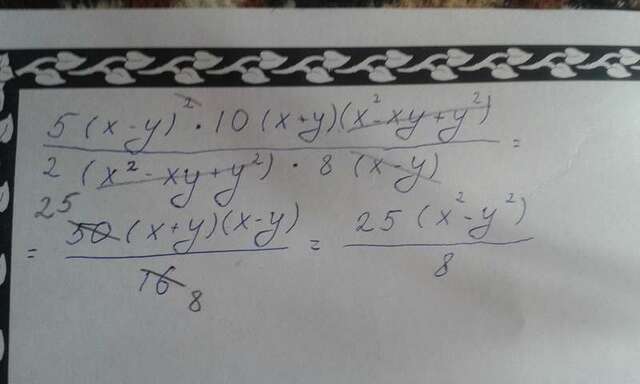 5(x-y)²·10(x+y)(x²-xy+y²)
2(x²-xy+y²)·8(x-y) =
25
= 50(x+y)(x-y) = 25(x²-y²)
16 8 8